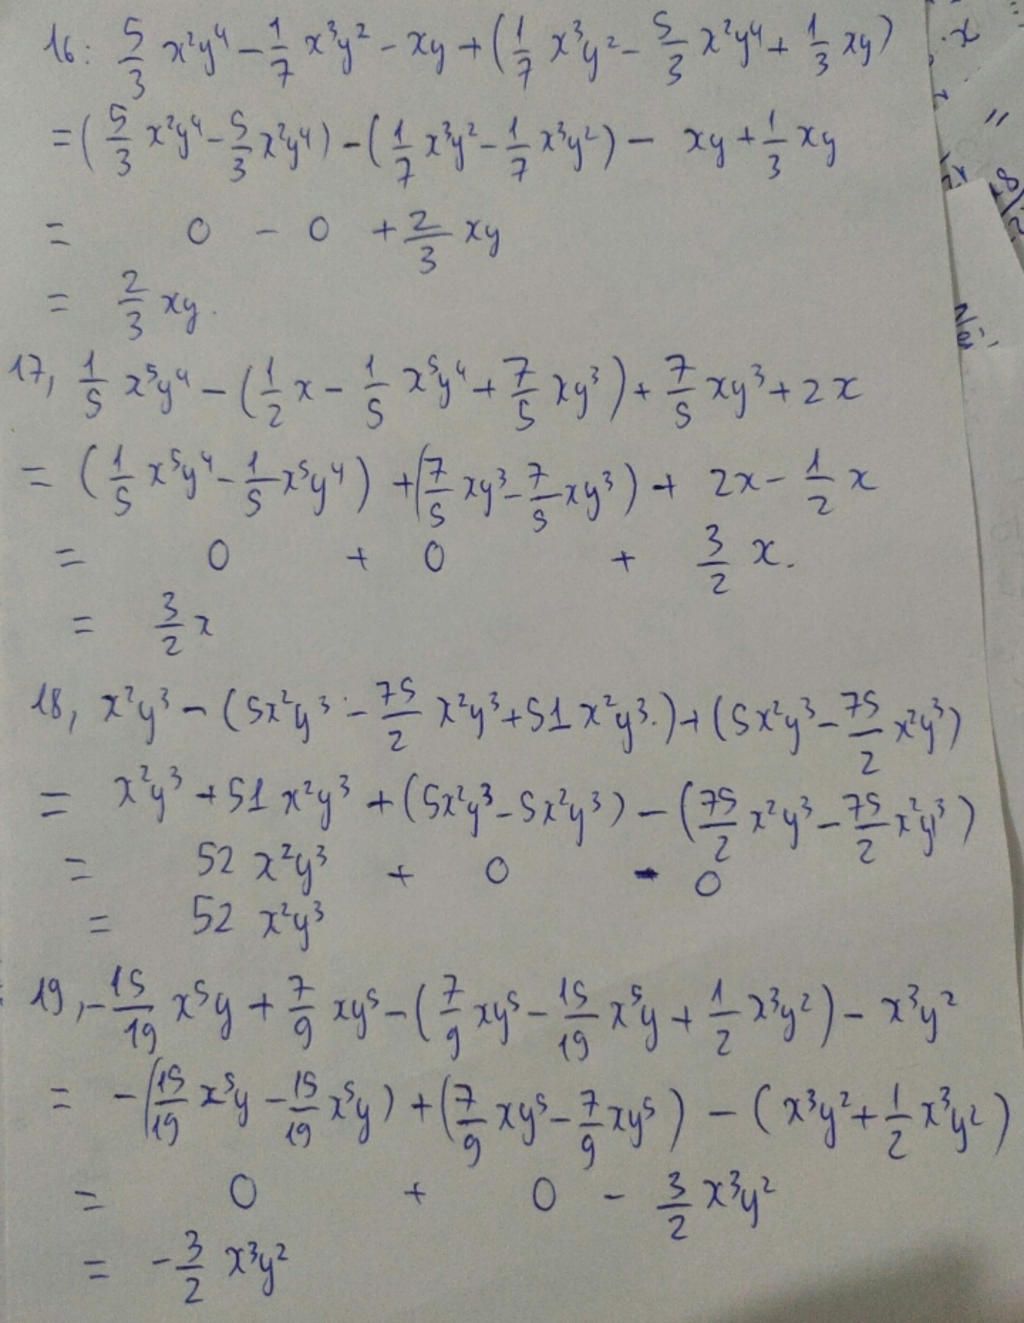 16: 5/3 x²y⁴ - 1/7 x³y² - xy + (1/7 x³y² - 5/3 x²y⁴ + 1/3 xy)
= (5/3 x²y⁴ - 5/3 x²y⁴) - (1/7 x³y² - 1/7 x³y²) - xy + 1/3 xy
= 0 - 0 + 2/3 xy
= 2/3 xy.
17, 1/5 x⁵y⁴ - (1/2 x - 1/5 x⁵y⁴ + 7/5 xy³) + 7/5 xy³ + 2x
= (1/5 x⁵y⁴ - 1/5 x⁵y⁴) + (7/5 xy³ - 7/5 xy³) + 2x - 1/2 x
= 0 + 0 + 3/2 x.
= 3/2 x
18, x²y³ - (5x²y³ - 75/2 x²y³ + 51x²y³.) + (5x²y³ - 75/2 x²y³)
= x²y³ + 51x²y³ + (5x²y³ - 5x²y³) - (75/2 x²y³ - 75/2 x²y³)
= 52 x²y³ + 0 - 0
= 52 x²y³
19, - 15/19 x⁵y + 7/9 xy⁵ - (7/9 xy⁵ - 15/19 x⁵y + 1/2 x³y²) - x³y²
= - (15/19 x⁵y - 15/19 x⁵y) + (7/9 xy⁵ - 7/9 xy⁵) - (x³y² + 1/2 x³y²)
= 0 + 0 - 3/2 x³y²
= - 3/2 x³y²